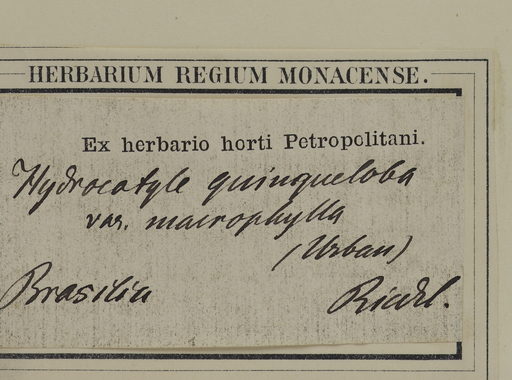 HERBARIUM REGIUM MONACENSE.
Ex herbario horti Petropolitani.
Hydrocotyle quinqueloba
var. macrophylla
(Urban)
Brasilia
Riedel.